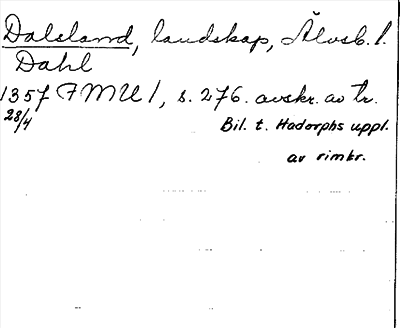 Dalsland, landskap, Älvsb. l.
Dahl
1357 FMU 1, s. 276. avskr. av tr.
28/4 Bil. t. Hadorphs uppl.
av rimkr.